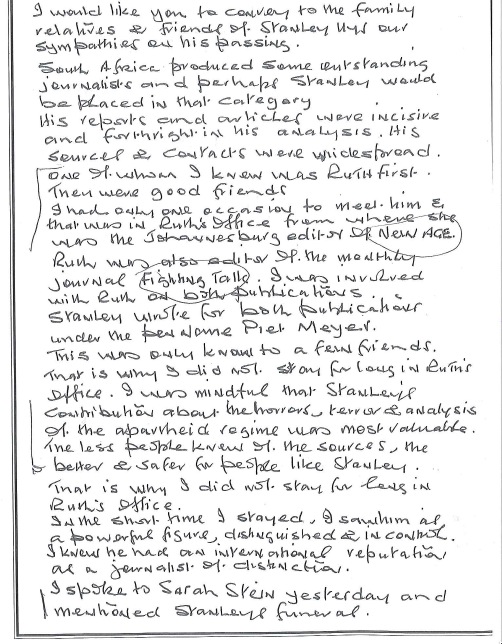 I would like you to convey to the family
relatives & friends of Stanley Uys our
sympathies on his passing.
South Africa produced some outstanding
journalists and perhaps Stanley would
be placed in that category
His reports and articles were incisive
and forthright in his analysis. His
sources & contacts were widespread.
One of whom I knew was Ruth First.
They were good friends
I had only one occasion to meet him &
that was in Ruth's office from where she
was the Johannesburg editor of NEW AGE.
Ruth was also editor of the monthly
journal Fighting Talk. I was involved
with Ruth on both publications.
Stanley wrote for both publications
under the pen name Piet Meyer.
This was only known to a few friends.
That is why I did not stay for long in Ruth's
office. I was mindful that Stanley's
contribution about the horrors, terror & analysis
of the apartheid regime was most valuable.
The less people knew of the sources, the
better & safer for people like Stanley.
That is why I did not stay for long in
Ruth's office.
In the short time I stayed, I saw him as
a powerful figure, distinguished & in control.
I knew he had an international reputation
as a journalist of distinction.
I spoke to Sarah Stein yesterday and
mentioned Stanleys funeral.